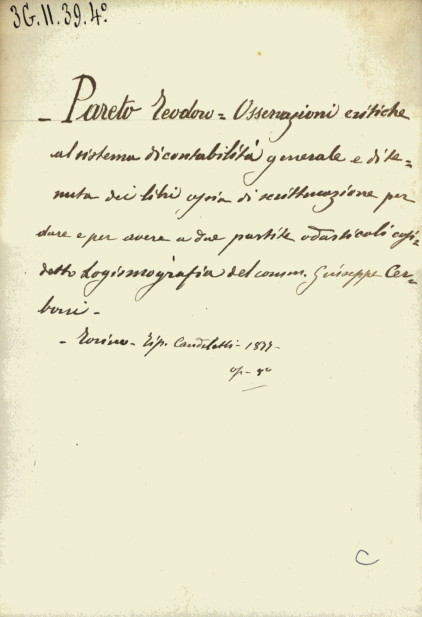 3G.II.39.4°
- Pareto Teodoro = Osservazioni critiche
al sistema di contabilità generale e di te=
nuta dei libri ossia di scritturazione per
dare e per avere a due partite od articoli cosi=
detto Logismografia del comm. Giuseppe Cer=
boni -
- Torino - Tip. Candeletti - 1877 -
op - 8°
C